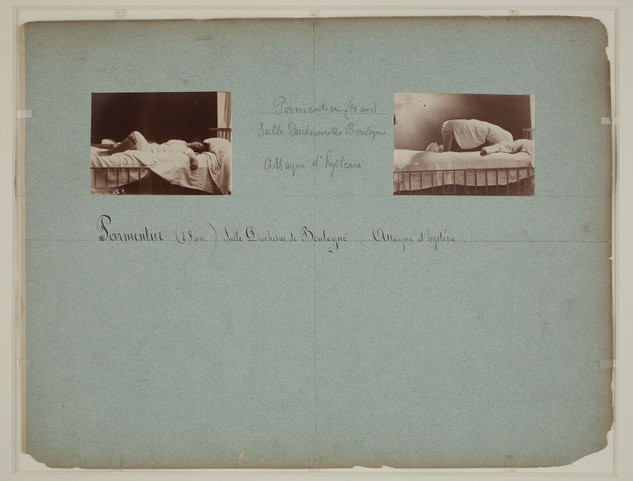 Parmentier (18 ans)
Salle Duchenne de Boulogne
Attaque d'hystérie
Parmentier (18 ans) Salle Duchenne de Boulogne Attaque d'hystérie.